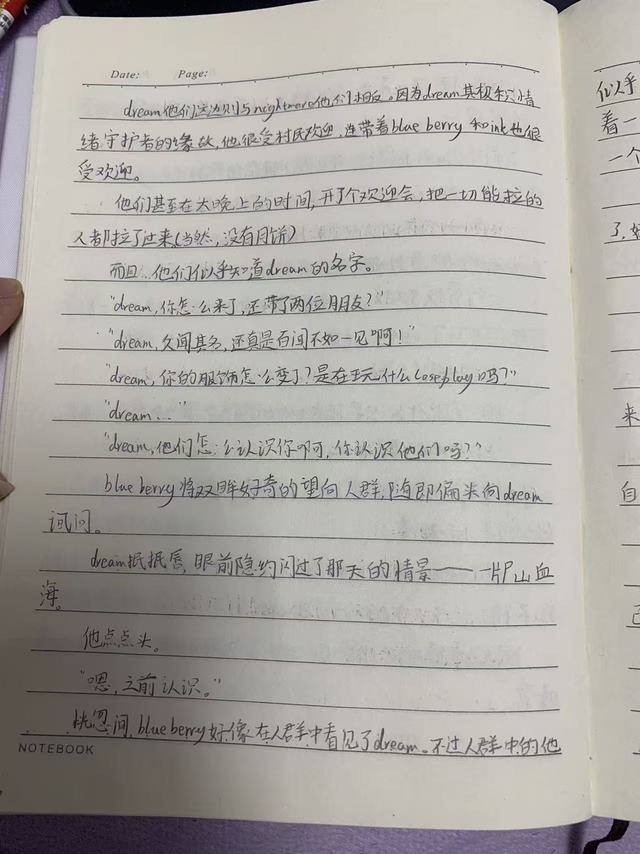 Date: Page:
dream他们这边则与nightmare他们相反。因为dream其积极情
绪守护者的缘故,他很受村民欢迎,连带着blue berry 和ink也很
受欢迎。
他们甚至在大晚上的时间,开了个欢迎会,把一切能拉的
人都拉了过来(当然,没有月饼)
而且,他们似乎知道dream的名字。
"dream,你怎么来了,还带了两位朋友?"
"dream,久闻其名,还真是百闻不如一见啊!"
"dream,你的服饰怎么变了?是在玩什么coseplay吗?"
"dream..."
"dream,他们怎么认识你啊,你认识他们吗?"
blue berry将双眸好奇的望向人群,随即偏头向dream
询问。
dream抿抿唇,眼前隐约闪过了那天的情景——一片尸山血
海。
他点点头。
"嗯,之前认识。"
恍惚间,blue berry好像在人群中看见了dream。不过人群中的他
NOTEBOOK
似乎
着一
一个
了,
来
自
己